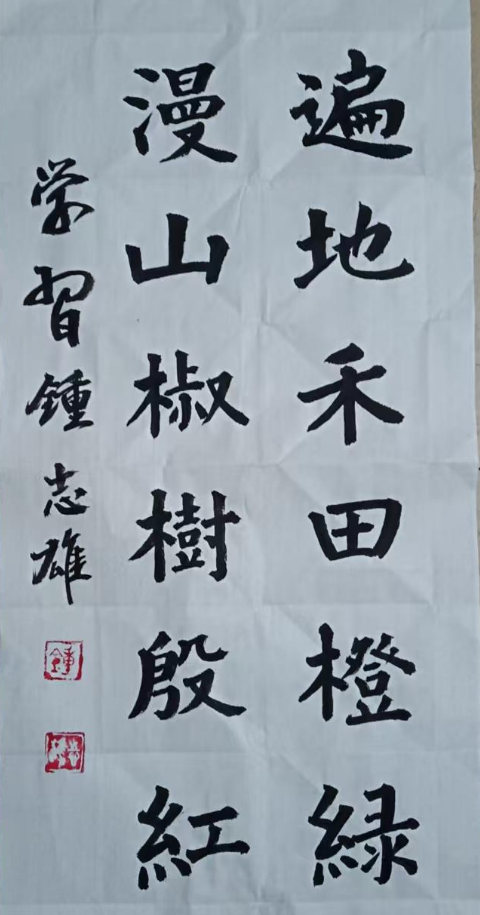 遍地禾田橙緑
漫山椒樹殷紅
学習鍾志雄
鍾